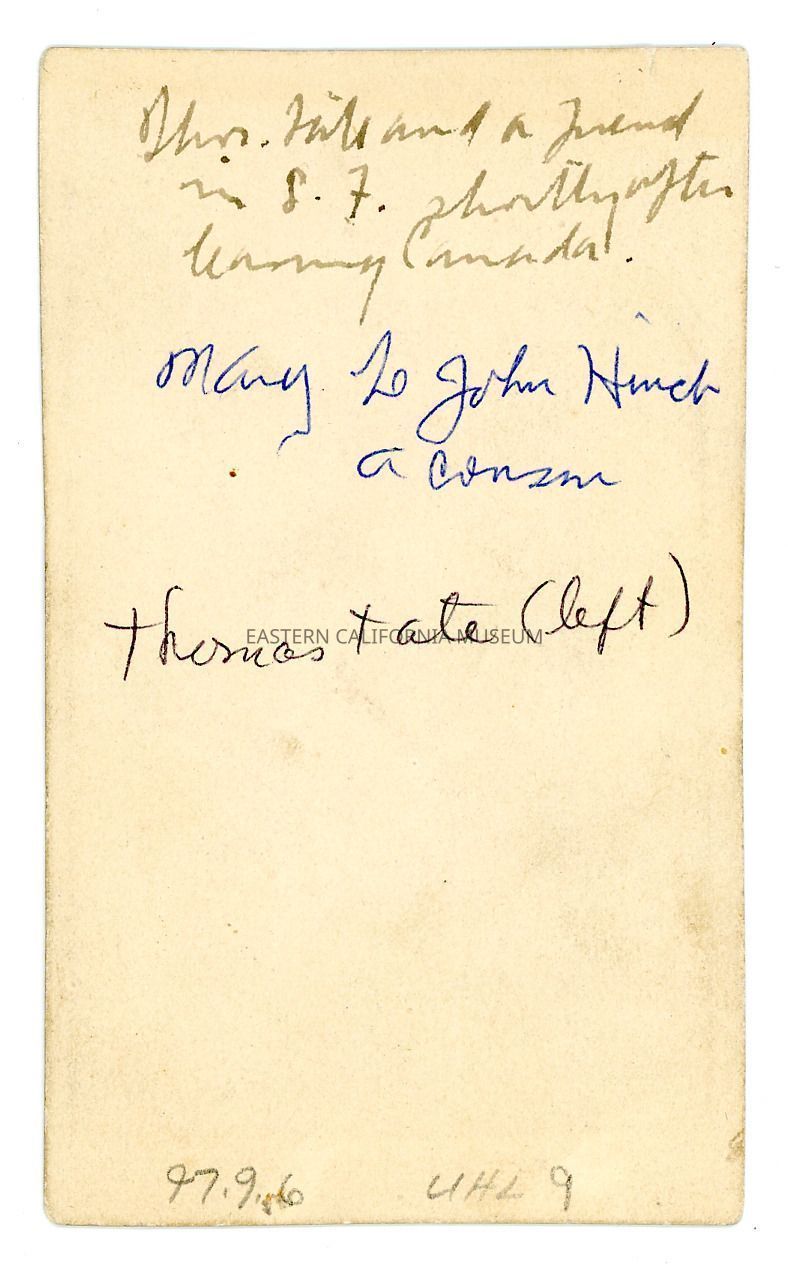 Thos. Tate and a friend
in S. F. shortly after
leaving Canada.
Mary to John Hinch
a cousin
Thomas Tate (left)
EASTERN CALIFORNIA MUSEUM
97.9.6 UHL 9